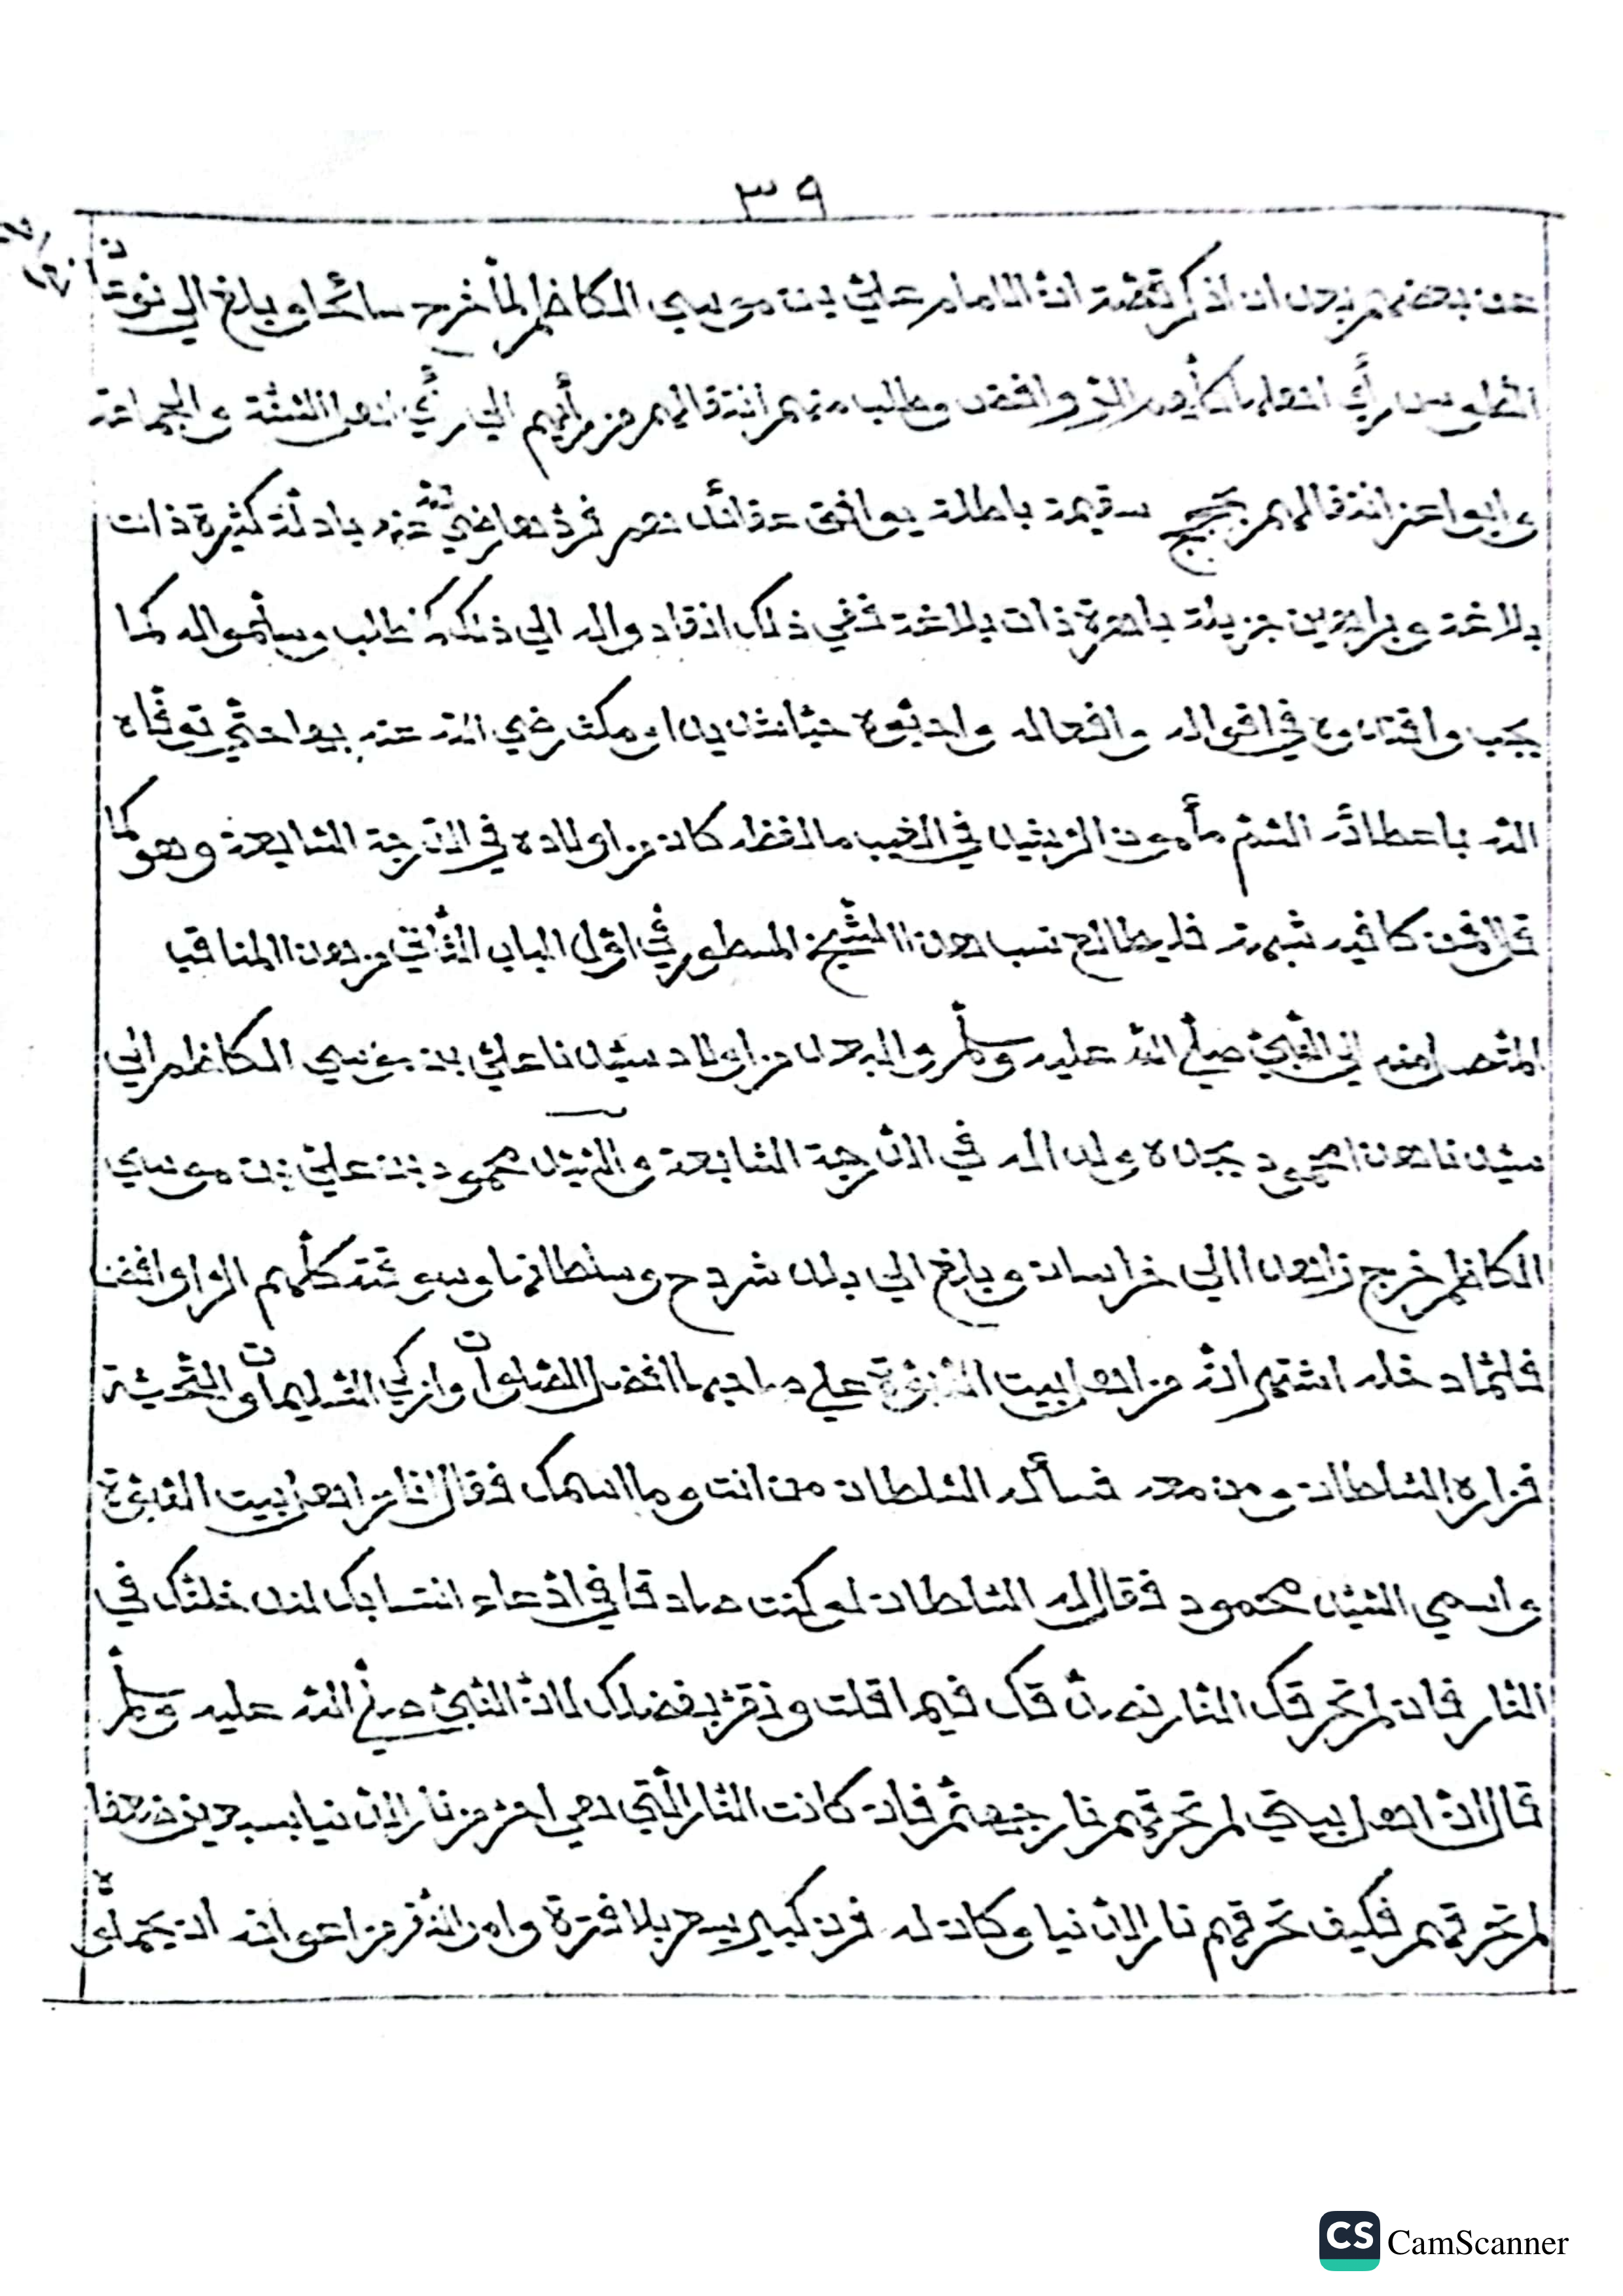 ٣٩
عن بعضهم بعد ان اذكر قصة انّ الامام عليّ بن موسي الكاظم لمّا خرج سائحا وبلغ الي
الطوس رأي اهلها الرّوافض وطلب منهم انتقالهم من رأيهم الي رئي اهل السّنّة والجماعة
وابوا عن انتقالهم بحجج سقيمة باطلة يوافق عقائدهم فردّها رضي الله عنه بادلّة كثيرة ذات
بلاغة وبراهين جزيلة باهرة ذات بلاغة ففي ذلك انقادوا له الي ذلك وسلّموا له كما
يجب واقتدوه في اقواله وافعاله واحبّوه حبّا شديدا ومكث رضي الله عنه بها حتّي توفّاه
الله باعطاء السّمّ مأمون الرّشيد في الغيب كان من اولاده في الدّرجة السّابعة وهو كما
قال فمن كا فيه شبهة فليطالع نسب هذا الشّيخ المسطور في اوّل الباب الثّاني من هذا المناقب
المتّصل منه الي النّبيّ صلّي الله عليه وسلّم والبعد من اولاد سيّدنا عليّ بن موسي الكاظم الي
سيّدنا هذا محمود يجده ولدا له في الدّرجة السّابعة والسّيّد محمود بن عليّ بن موسي
الكاظم خرج زاهدا الي خراسان وبلغ الي بلد شردح وسلطانها وسوقته كلّهم الروافض
فلمّا دخله اشتهر انّه من اهل بيت النّبوّة علي صاحبها افضل الصّلوات وازكي التّسليمات والتّحيّة
فزاره السّلطان ومن معه فسأله السّلطان من انت وما اسمك فقال انا من اهل بيت النّبوّة
واسمي السّيّد محمود فقال له السّلطان لو كنت صادقا في ادّعاء انتسابك لندخلنّك في
النّار فان لم تحرقك النّار نصدّقك فيما قلت ونقرّ بفضلك لانّ النّبيّ صلّي الله عليه وسلّم
قال انّ اهل بيتي لم تحرقهم نار جهنّم فان كانت النّار الّتي هي احرّ من نار الدّنيا بسبعين ضعفا
لم تحرقهم فكيف تحرقهم نار الدّنيا وكان له فرن كبير يسعر بلا فترة وامر نفر من اعوانه ان يحملوه
CS CamScanner